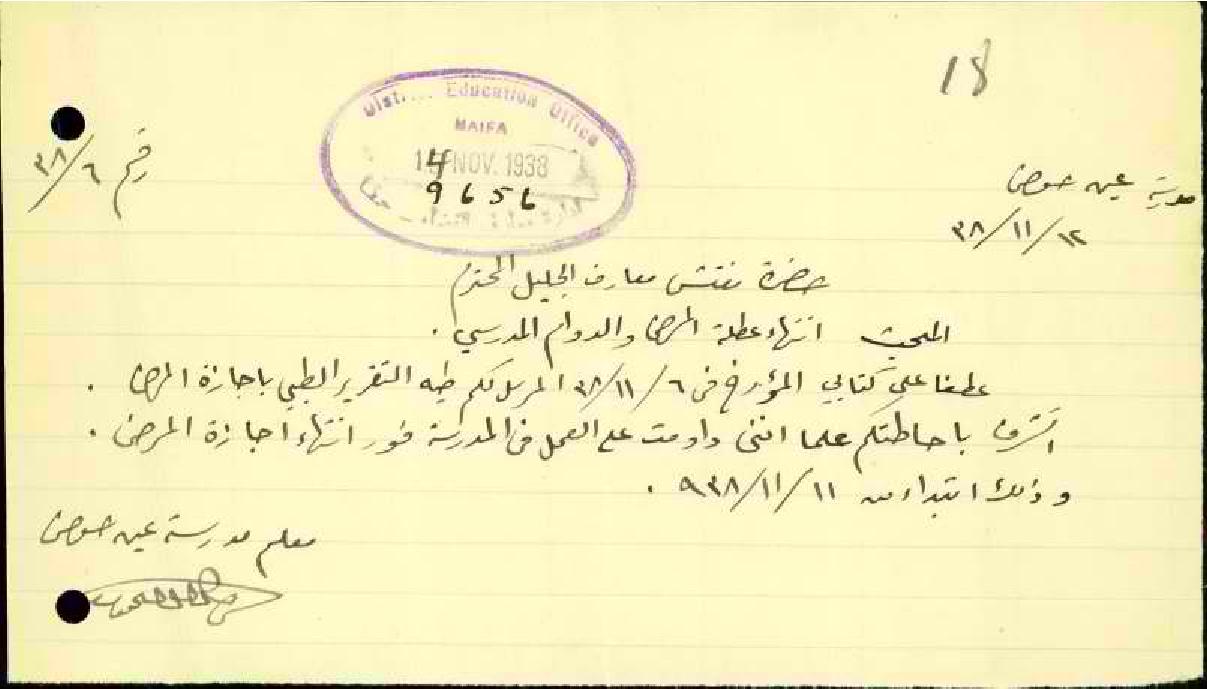 18
District Education Office
HAIFA
14 NOV. 1938
9656
رقم ٦/٣٨
مدرسة عين حوض
١٢/١١/٣٨
حضرة مفتش معارف الجليل المحترم
المبحث انتهاء عطلة المرض والدوام المدرسي .
عطفا على كتابي المؤرخ في ٦/١١/٣٨ المرسل لكم طيه التقرير الطبي باجازة المرض .
اتشرف باحاطتكم علما انني داومت على العمل في المدرسة فور انتهاء اجازة المرض .
وذلك ابتداء من ١١/١١/٩٣٨ .
معلم مدرسة عين حوض